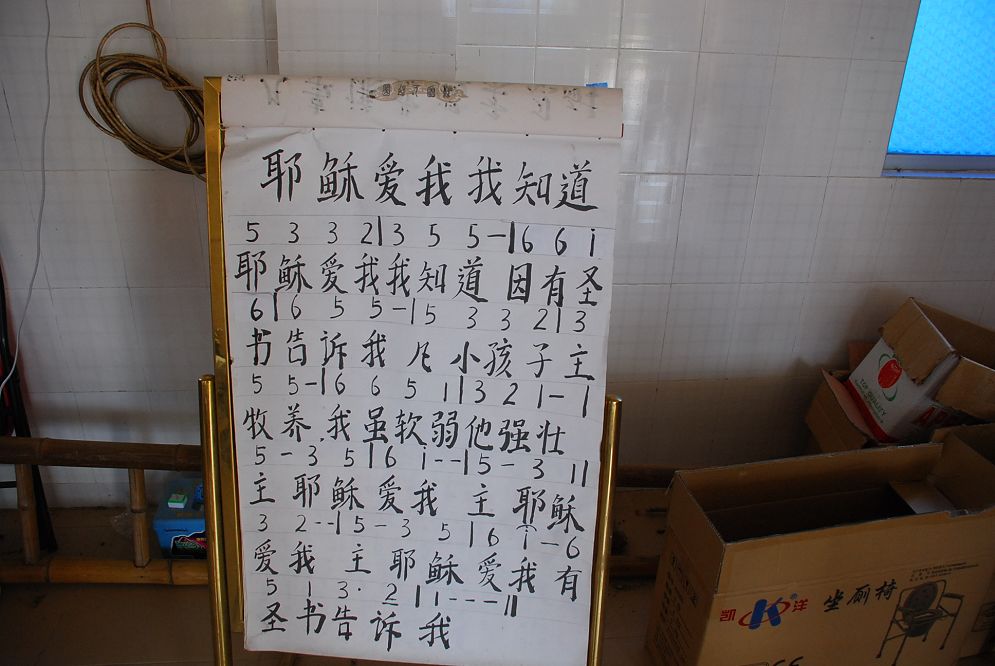 耶稣爱我我知道
5 3 3 2|3 5 5-|6 6 i
耶稣爱我我知道 因有圣
6|6 5 5-|5 3 3 2|3
书告诉我 凡小孩子主
5 5-|6 6 5 1|3 2 1-|
牧养.我虽软弱他强壮
5-3 5|6 i--|5-3 1||
主耶稣爱我 主耶稣
3 2--|5-3 5|6 i-6
爱我 主耶稣爱我有
5 1 3· 2|1---||
圣书告诉我
凯 K 洋
坐厕椅
TOP QUALITY